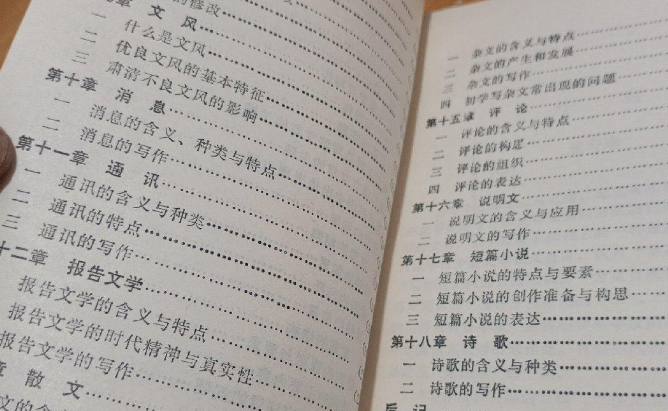 的修改
章 文 风
一 什么是文风
二 优良文风的基本特征
三 肃清不良文风的影响
第十章 消 息
一 消息的含义、种类与特点
二 消息的写作
第十一章 通 讯
一 通讯的含义与种类
二 通讯的特点
三 通讯的写作
十二章 报告文学
报告文学的含义与特点
报告文学的时代精神与真实性
报告文学的写作
章 散 文
文的含
一 杂文的含义与特点
二 杂文的产生和发展
三 杂文的写作
四 初学写杂文常出现的问题
第十五章 评 论
一 评论的含义与特点
二 评论的构思
三 评论的组织
四 评论的表达
第十六章 说明文
一 说明文的含义与应用
二 说明文的写作
第十七章 短篇小说
一 短篇小说的特点与要素
二 短篇小说的创作准备与构思
三 短篇小说的表达
第十八章 诗 歌
一 诗歌的含义与种类
二 诗歌的写作
后 记